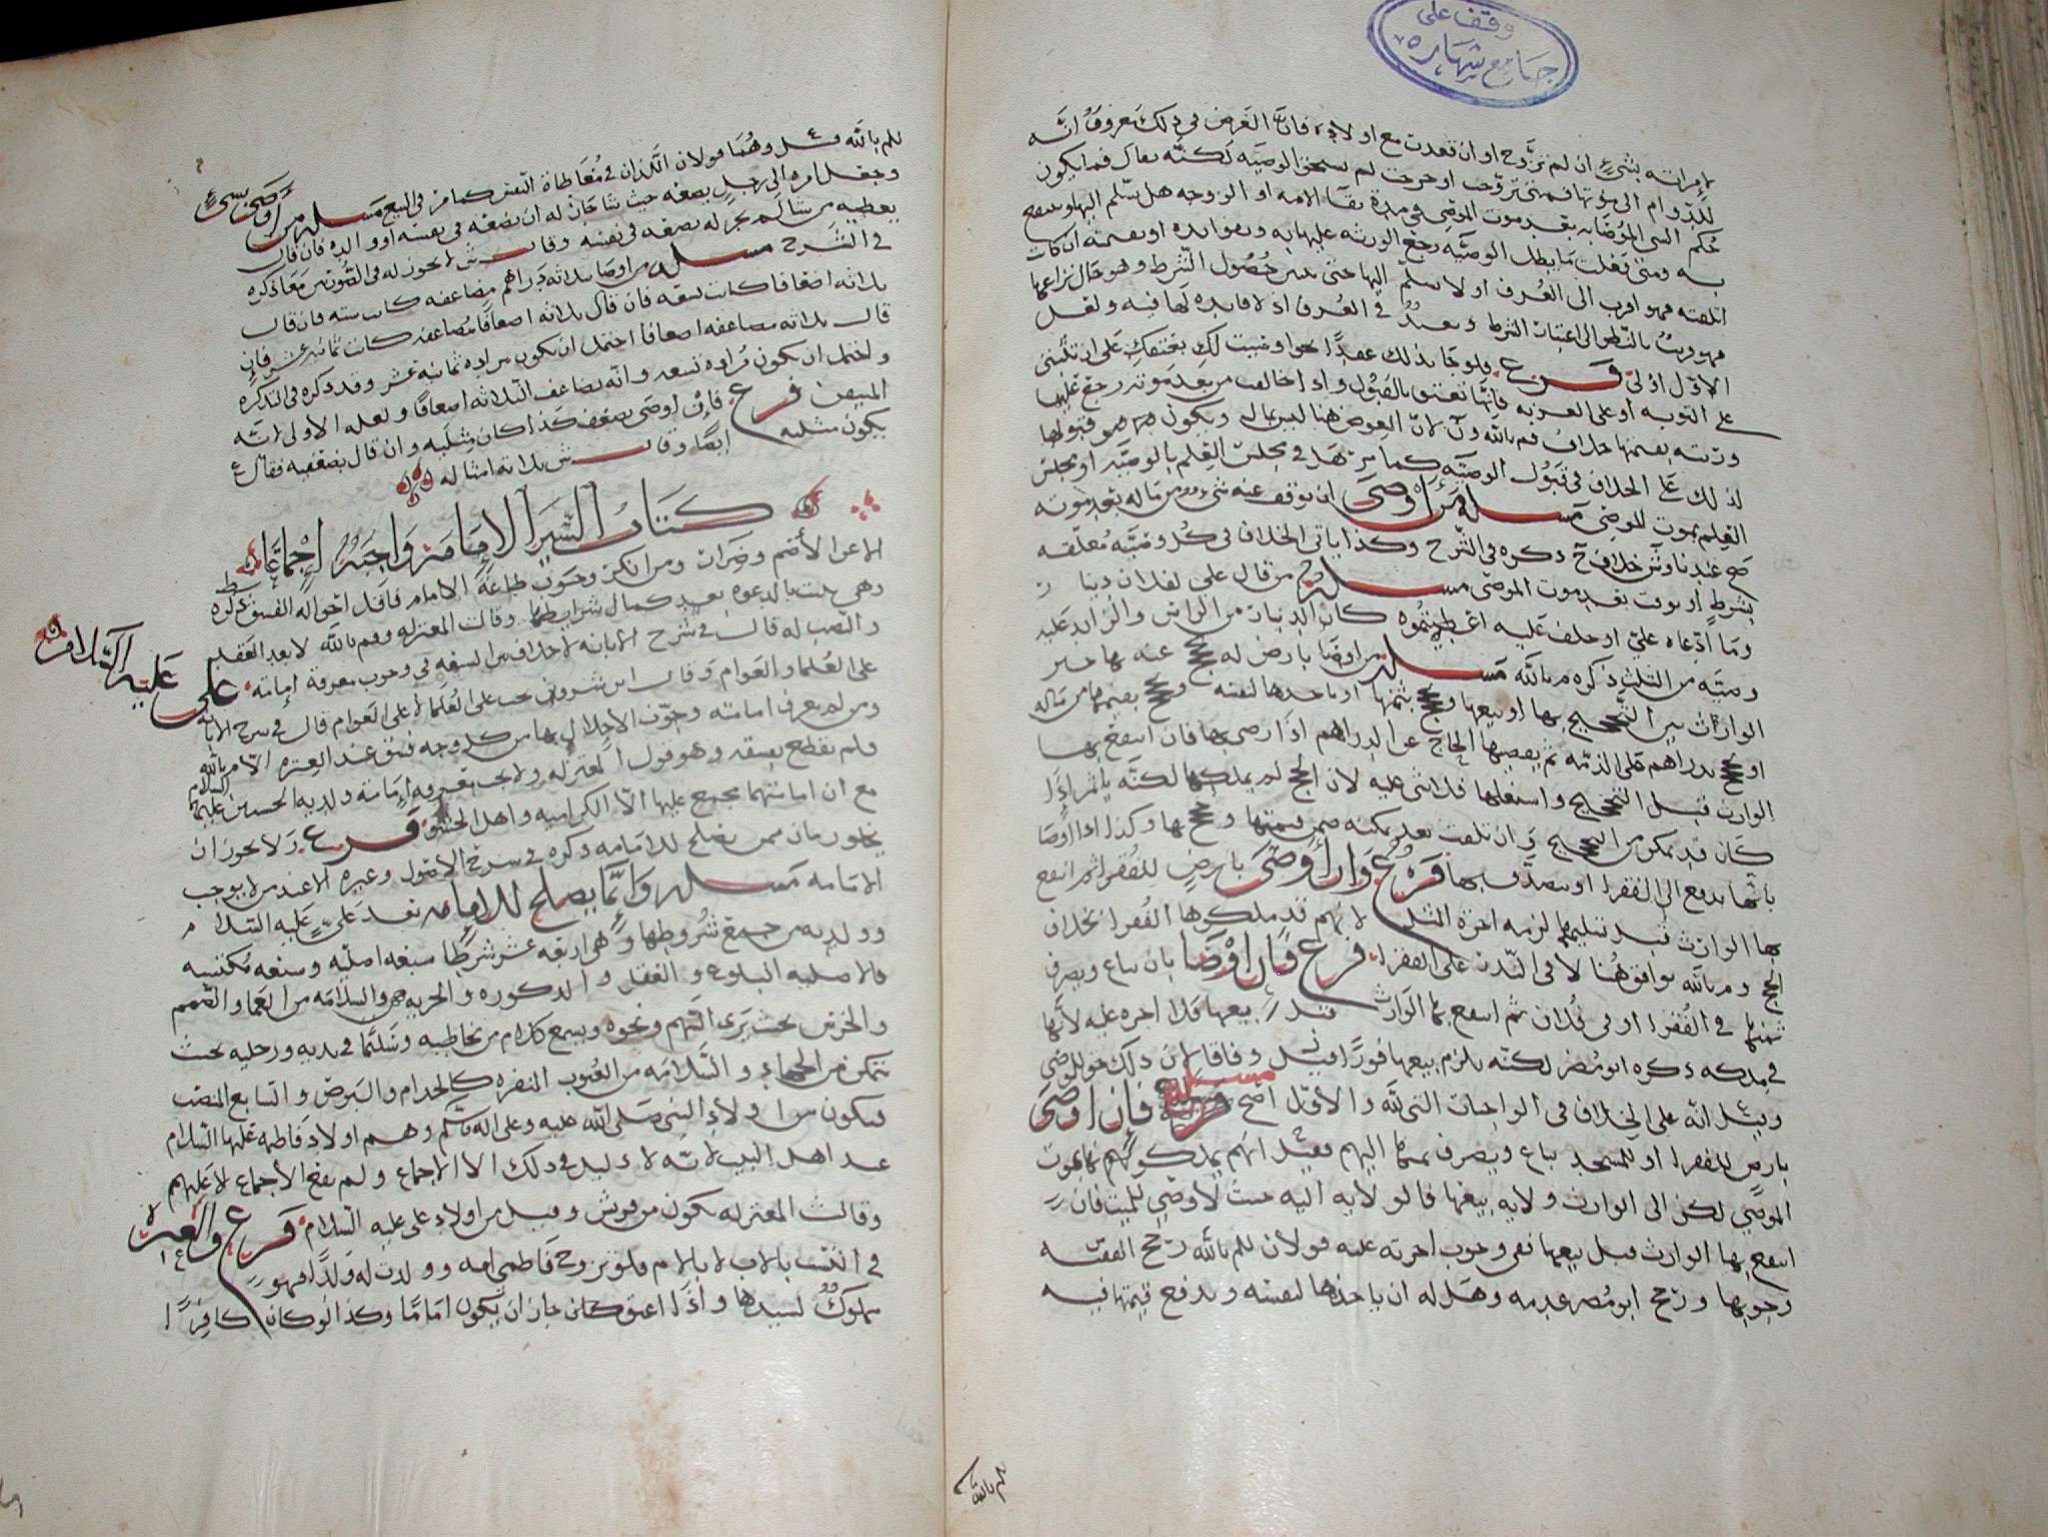 وقف على
جامع شهاره
لامراته بشيء ان لم تزوج او ان قعدت مع اولاده فان الغرض في ذلك معروف انه
للدوام الى موتها فمتى تزوجت او خرجت لم تستحق الوصيه لكنه يقال فما يكون
حكم الشي الموصا به بعد موت الموصي في مدة بقا الامه او الزوجه هل يسلم اليها وتنتفع
به ومتى فعلت ما يبطل الوصيه رجع الورثه عليها به وبفوايده او بقيمته ان كانت
اتلفته فهو اقرب الى العرف او لا يسلم اليها حتى حصول الشرط وهو حال نزاعها
فهو قريب بالنظر الى اعتبار الشرط وبعيد في العرف اذ لا فايده لها فيه ولعل
الاول اولى فرع فلو كان ذلك عقدا نحو اوصيت لك بعتقك على ان تثبتي
على التوبه او على العزبه فانها تعتق بالقبول واذا خالفت من بعد موته رجع عليها
ورثته بقيمتها خلاف م بالله و لان العوض هنا ليس بمال ويكون قبولها
لذلك على الخلاف في قبول الوصيه كما مر هل في مجلس العلم بالوصيه او مجلس
العلم بموت الموصي مسله من اوصى ان يوقف عنه شيء من ماله بعد موته
صح عندنا و خلاف ذكره في الشرح وكذا ياتي الخلاف في كل وصيه معلقه
بشرط او بوقت بعد موت الموصي مسله من قال علي لفلان دينار
وما ادعاه علي او حلف عليه اعطيتموه كان الدينار من الراس والزايد عليه
وصيه من الثلث ذكره م بالله مسله من اوصا بارض له يحج عنه بها خير
الوارث بين التحجيج بها او يبيعها ويحج بثمنها او ياخذها لنفسه ويحج بقيمتها من ماله
او يحج بدراهم على الذمه ثم يقضيها الحاج عن الدراهم اذا رضي بها فان انتفع بها
الوارث قبل التحجيج واستغلها فلا شي عليه لان الحج لم يملكها لكنه ياثم اذا
كان قد تمكن من التحجيج وان تلفت بعد تمكنه ضمن قيمتها وحج بها وكذا اذا اوصا
بانها تدفع الى الفقرا او يتصدق بها فرع وان اوصى بارض للفقرا ثم انتفع
بها الوارث قبل تسليمها لزمه اجرة المثل لانهم قد ملكوها الفقرا بخلاف
الحج وم بالله يوافق هنا لا في النذر على الفقرا فرع فان اوصا بان تباع ويصرف
ثمنها في الفقرا او في فلان ثم انتفع بها الوارث قبل بيعها فلا اجره عليه لانها
في ملكه ذكره ابو مضر لكنه يلزم بيعها فورا وفاقا لان ذلك حق للوصي
وقيل انه على الخلاف في الواجبات التي لله والاول اصح مسله فان اوصى
بارض للفقرا او للمسجد تباع ويصرف ثمنها اليهم فقيل انهم يملكونها بموت
الموصي لكن الى الوارث ولايه بيعها فالولايه اليه حيث لا وصي للميت فان
انتفع بها الوارث قبل بيعها ففي وجوب اجرته عليه قولان للم بالله رجح الفقيه
وجوبها ورجح ابو مضر عدمه وهل له ان ياخذها لنفسه ويدفع قيمتها فيه
للم بالله
للم بالله وهما قولان اللذان في معاطاة النفس كما مر في البيع مسله من اوصى بشيء
وجعل امره الى رجل يضعه حيث شا جاز له ان يضعه في نفسه او والده فان قال
يعطيه من شا لم يجز له يضعه في نفسه وقال لا يجوز له في الصورتين معا ذكره
في الشرح مسله من اوصا بثلاثه دراهم مضاعفه كانت سته فان قال
ثلاثه اضعافا كانت تسعه فان قال ثلاثه اضعافا مضاعفه كانت ثمانيه عشر فان
قال ثلاثه مضاعفه اضعافا احتمل ان يكون مراده ثمانيه عشر وقد ذكره في التذكره
واحتمل ان يكون مراده تسعه وانه يضاعف الثلاثه اضعافا ولعله الاولى لانه
المتيقن فرع فان اوصى بضعف كذا كان مثليه وان قال بضعفيه فقال
يكون مثليه ايضا وقال ثلاثه امثاله
كتاب السير الامامة واجبة اجماعا
الا عن الاصم وضرار ومن انكر وجوب طاعة الامام فاقل احواله الفسق ذكره
وهي تثبت بالدعوه بعد كمال شرايطها وقالت المعتزله وم بالله لا بد العقد
والنصب له قال في شرح الابانه لا خلاف بين الشيعه في وجوب معرفة امامة علي عليه السلام
على العلما والعوام وقال ابن شروين تجب على العلما لا على العوام قال في شرح الابانه
ومن لم يعرف امامته وجوز الاخلال بها من كل وجه فسق عند العتره الا م بالله
فلم يقطع بفسقه وهو قول المعتزله ولا تجب معرفه امامة ولديه الحسنين عليهما السلام
مع ان امامتهما مجمع عليها الا الكراميه واهل الحشو فرع ولا يجوز ان
يخلو زمان ممن يصلح للامامه ذكره في شرح الاصول وغيره الا عند من لا يوجب
الامامه مسله وانما يصلح للامامه بعد علي عليه السلام
وولديه من جمع شروطها وهي اربعه عشر شرطا سبعه اصليه وسبعه مكتسبه
فالاصليه البلوغ والعقل والذكوره والحريه والسلامه من العما والصمم
والخرس بحيث يرى التهم ونحوه ويسمع كلام من يخاطبه وسليما في يديه ورجليه بحيث
يتمكن من الجهاد والسلامه من العيوب المنفره كالجذام والبرص والسابع المنصب
فيكون من اولاد النبي صلى الله عليه وعلى اله وسلم وهم اولاد فاطمه عليها السلام
عند اهل البيت لانه لا دليل في ذلك الا الاجماع ولم يقع الاجماع الا عليهم
وقالت المعتزله يكون من قريش وقيل من اولاد علي عليه السلام فرع والعبره
في النسب بالاب لا بالام فلو تزوج فاطمي امه وولدت له ولدا فهو
مملوك لسيدها واذا اعتق كان جاز ان يكون اماما وكذا لو كان كافرا